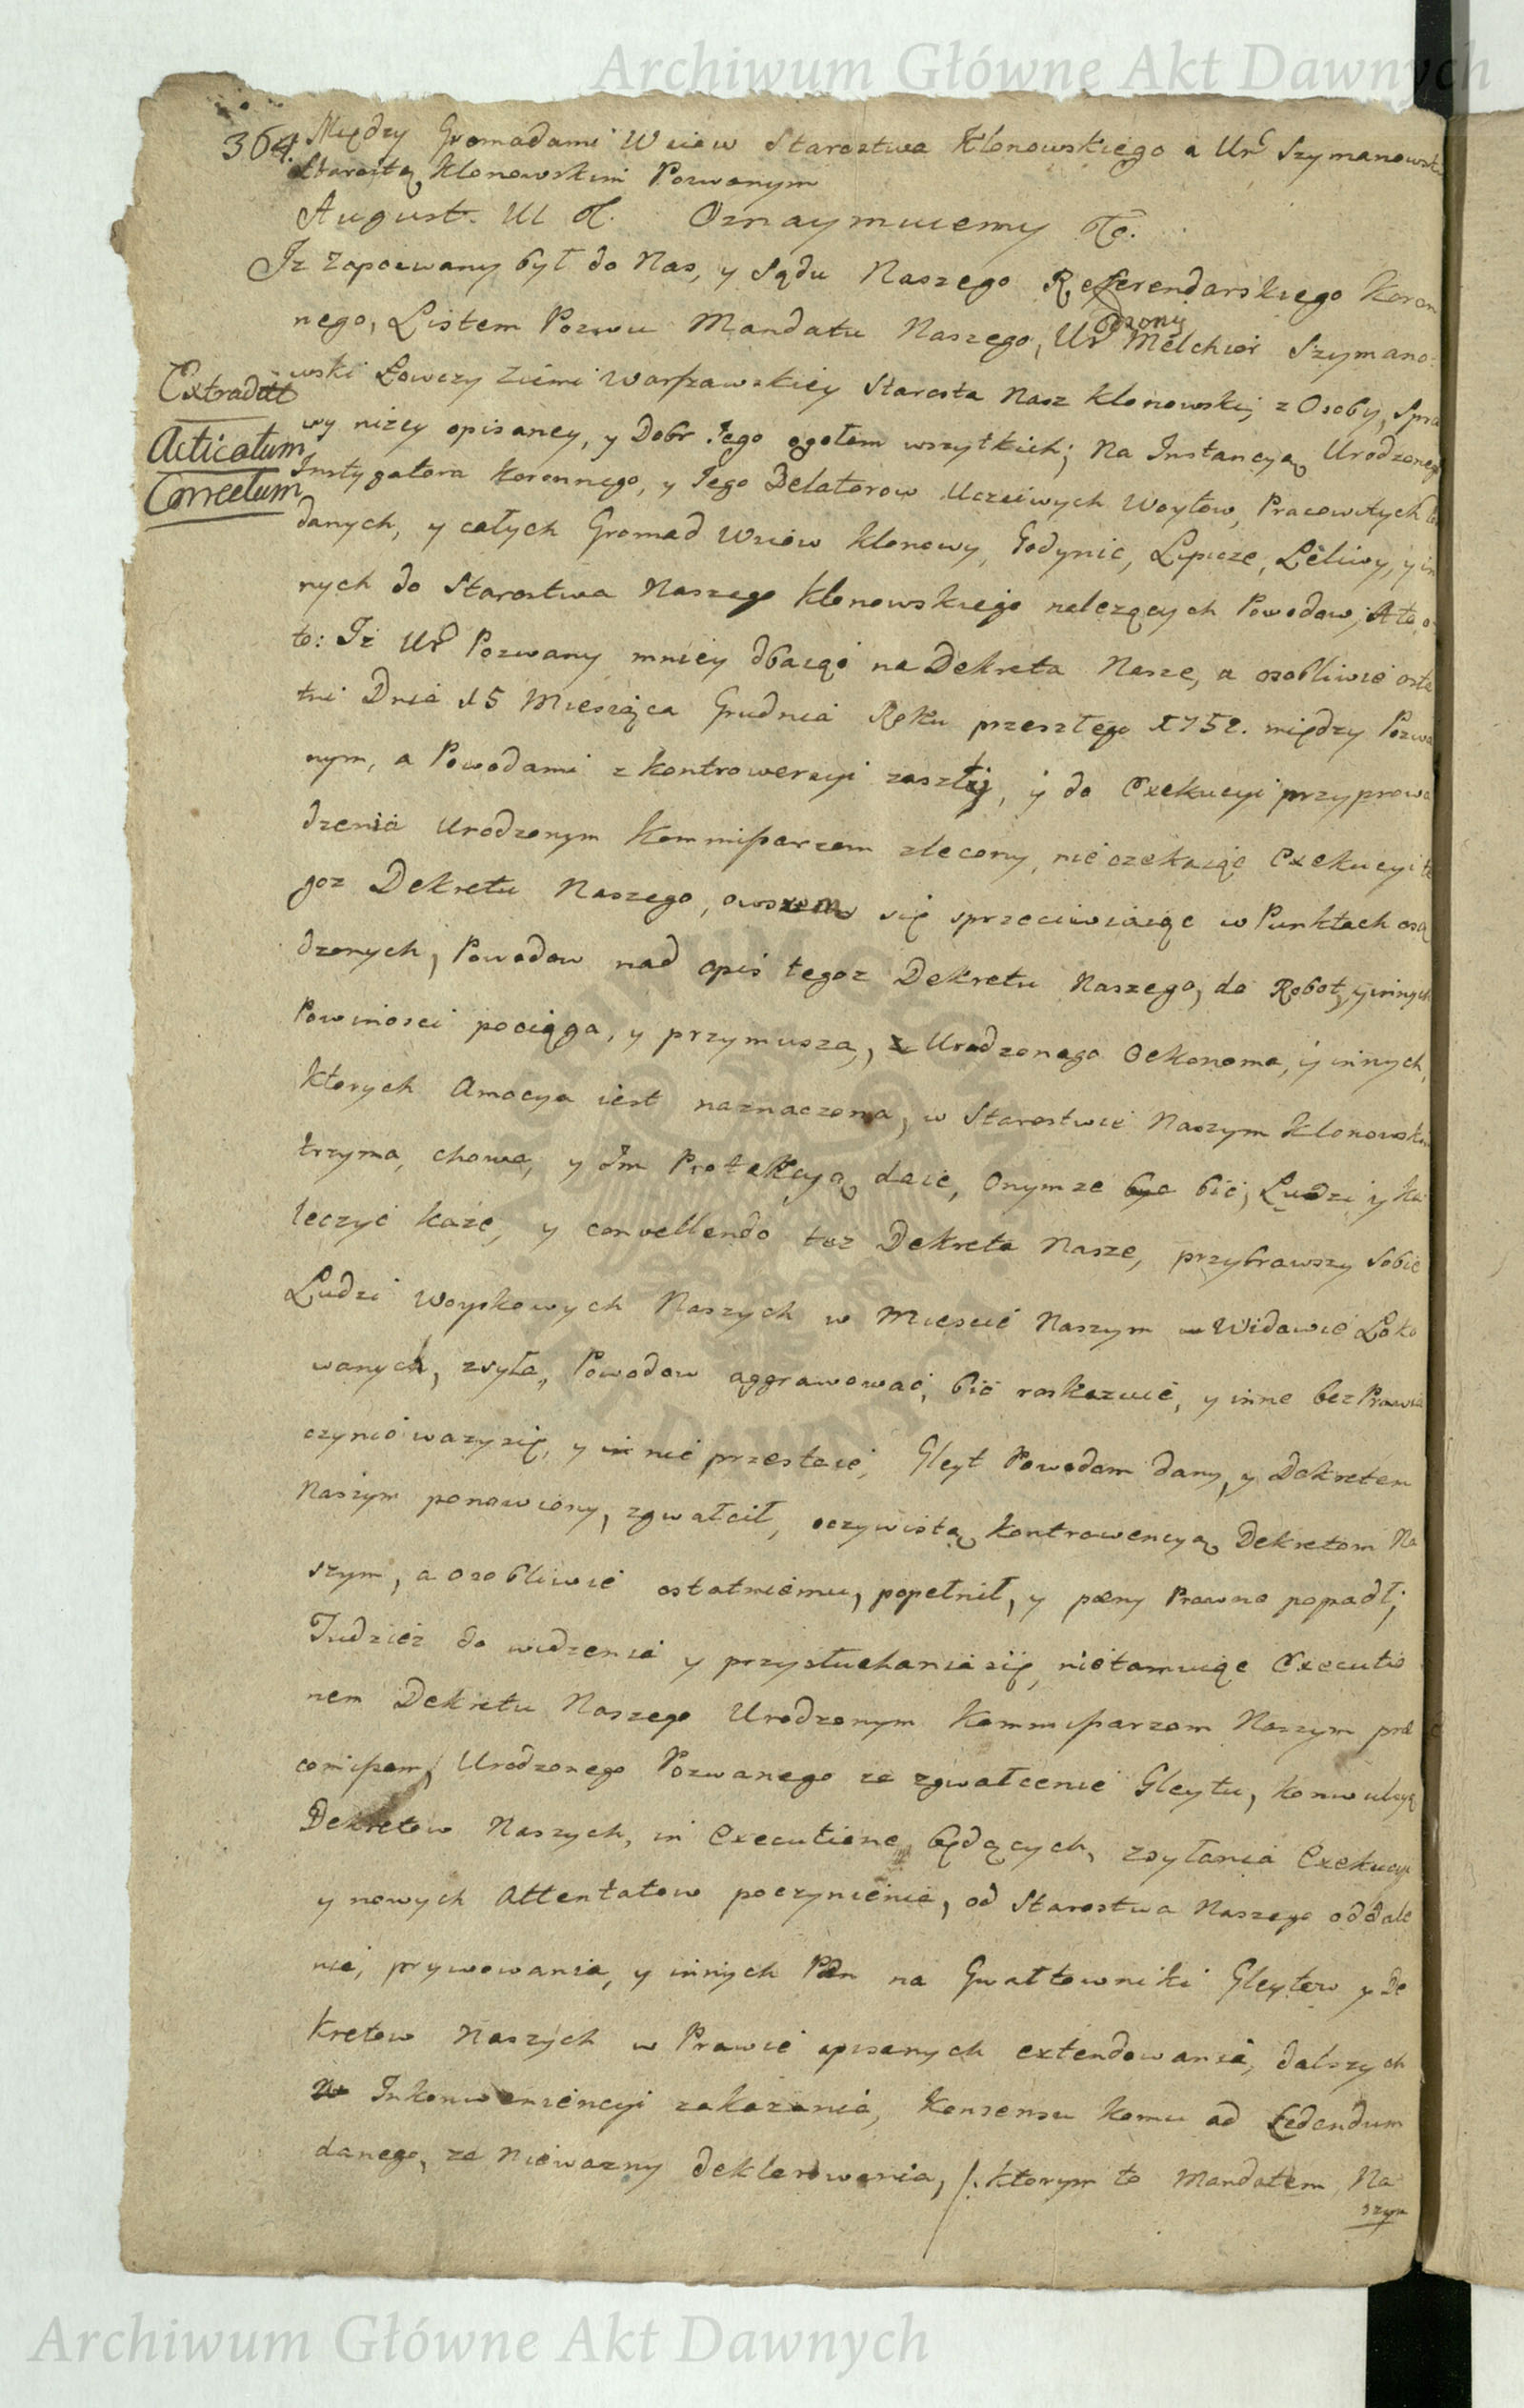 Archiwum Główne Akt Dawnych
364. Między Gromadami Wsiow Starostwa Klonowskiego a Urd Szymanowsk
Starostą Klonowskim Pozwanym
August. III etc. Oznaymuiemy etc.
Iz Zapozwany był do Nas, y Sądu Naszego Referendarskiego Koron
nego, Listem Pozwu Mandatu Naszego, Urodzony Melchior Szymano-
wski Łowczy Ziemi Warszawskiey Starosta Nasz Klonowski, z Osoby, Spra
Extradit
wy niżey opisaney, y Dobr Iego ogołem wszytkich; Na Instancyą Urodzonego
Acticatum
Instygatora Koronnego, y Iego Delatorow Uczciwych Woytow, Pracowitych
Correctum
danych, y całych Gromad Wsiow Klonowy, Godynic, Lipicze, Leliwy, y in
nych do Starostwa Naszego Klonowskiego nalezących Powodow, A to, o
to: Iż Urd Pozwany mniey dbaiąc na Dekreta Nasze, a osobliwie osta
tni Dnia 15 Miesiąca Grudnia Roku przeszłego 1752. między Pozwa
nym, a Powodami z kontrowersyi zaszły, y do Exekucyi przyprowa
dzenia Urodzonym Kommissarzom zlecony, nie czekaiąc Exekucyi te
goz Dekretu Naszego, owszem się sprzeciwiaiąc w Punktach osą
dzonych, Powodow nad opis tegoz Dekretu Naszego, do Robot, y innych
Powinosci pociąga, y przymusza, Urodzonego Oekonoma, y innych,
ktorych Amocya iest naznaczona, w Starostwie Naszym Klonowskim
trzyma, chowa, y Im Protekcyą daie, Onymze bić, Ludzi y ka
leczyć każe, y convellendo też Dekreta Nasze, przybrawszy sobie
Ludzi Woyskowych Naszych w Miescie Naszym Widawie Loko
wanych, zsyła, Powodow aggrawować, bić roskazuie, y inne bezPrawia
czynić wazysię, y nie przestaie, Gleyt Powodom dany, y Dekretem
Naszym ponowiony, zgwałcił, oczywistą Kontrawencyą Dekretom Na
szym, a osobliwie ostatniemu, popełnił, y pæny Prawne popadł;
Tudzież do widzenia y przysłuchania się, nietamuiąc Executio
nem Dekretu Naszego Urodzonym Kommissarzom Naszym præ
comissam, Urodzonego Pozwanego za zgwałcenie Gleytu, konwulsyą
Dekretow Naszych, in Executione będących, zsyłania Exekucyi
y nowych Attentatow poczynienie, od Starostwa Naszego oddale
nia, prywowania, y innych Pæn na Gwałtowniki Gleytow y De
kretow Naszych w Prawie opisanych extendowania, dalszych
Inkonweniencyi zakazania, Konsensu komu ad Cedendum
danego, za Nieważny deklarowania, /. ktorym to Mandatem Na
szym
Archiwum Główne Akt Dawnych